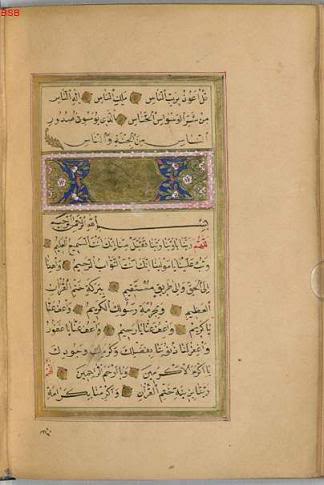 BSB
قل اعوذ برب الناس ملك الناس اله الناس
من شر الوسواس الخناس الذى يوسوس فى صدور
الناس من الجنة والناس
بسم الله الرحمن الرحيم
ربنا يا ربنا ربنا تقبل منا انك انت السميع العليم
وتب علينا يا مولينا انك انت التواب الرحيم واهدنا
الى الحق والى طريق مستقيم ببركة ختم القرآن
العظيم وبحرمة رسولك الكريم واعف عنا
يا كريم واعف عنا يا رحيم واعف عنا يا غفور
واغفر لنا ذنوبنا بفضلك وكرمك وجودك
يا اكرم الاكرمين ويا ارحم الراحمين
ربنا بزينة ختم القرآن واكرمنا بكرامة